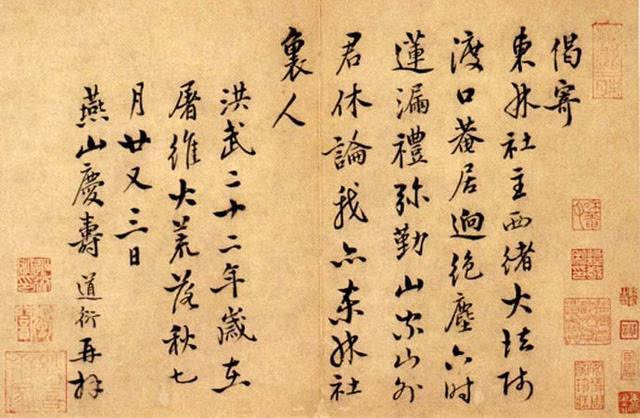 偈寄
東林社主西緒大法師
渡口菴居迥絶塵六時
蓮漏禮弥勤山家山外
君休論我亦東林社
裏人
洪武二十二年歲在
屠維大荒落秋七
月廿又三日
燕山慶壽道衍再拜